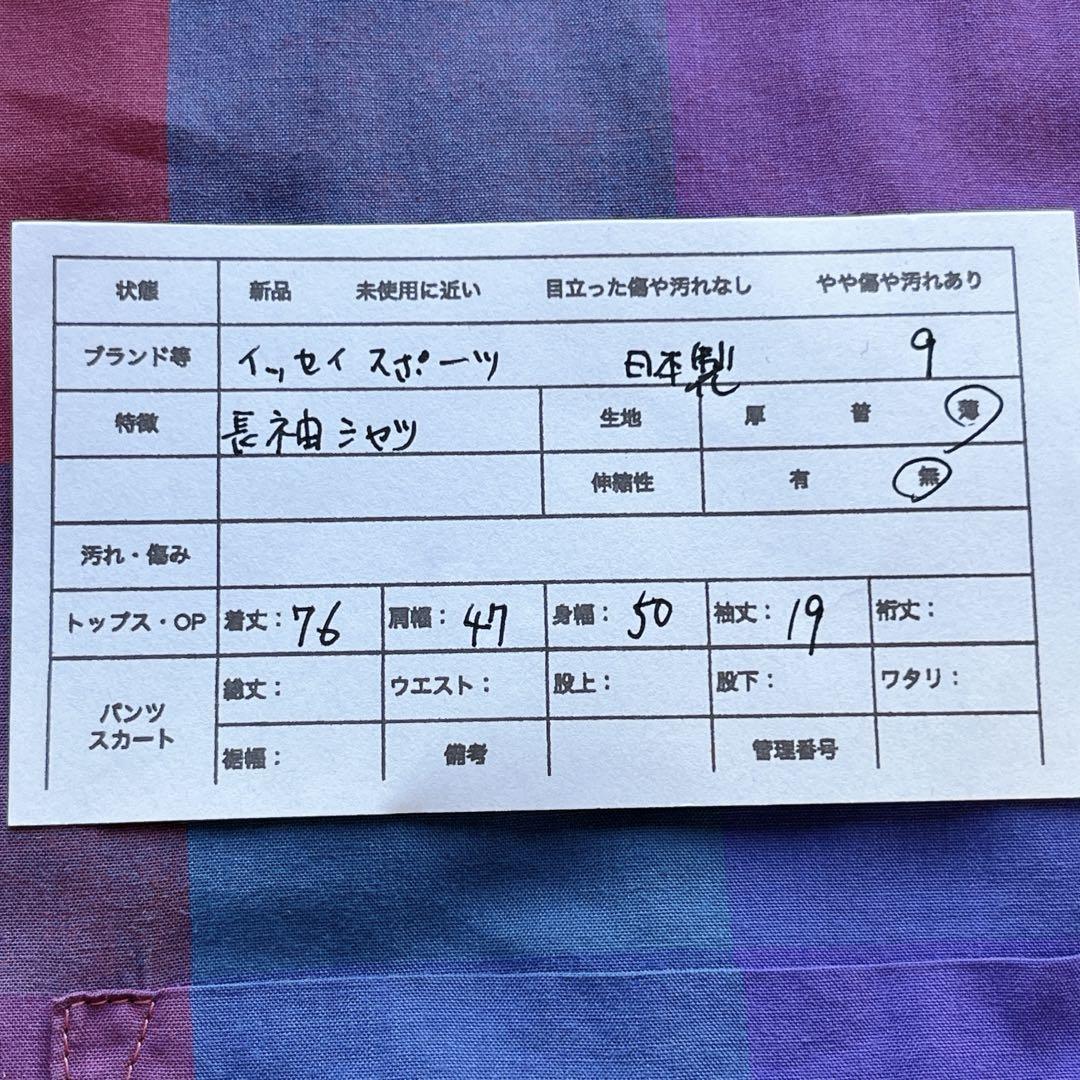 状態 新品 未使用に近い 目立った傷や汚れなし やや傷や汚れあり
ブランド等 イッセイスポーツ 日本製 9
特徴 長袖シャツ 生地 厚 普 薄
伸縮性 有 無
汚れ・傷み
トップス・OP 着丈：76 肩幅：47 身幅：50 袖丈：19 裄丈：
パンツ スカート 総丈： ウエスト： 股上： 股下： ワタリ：
裾幅： 備考 管理番号